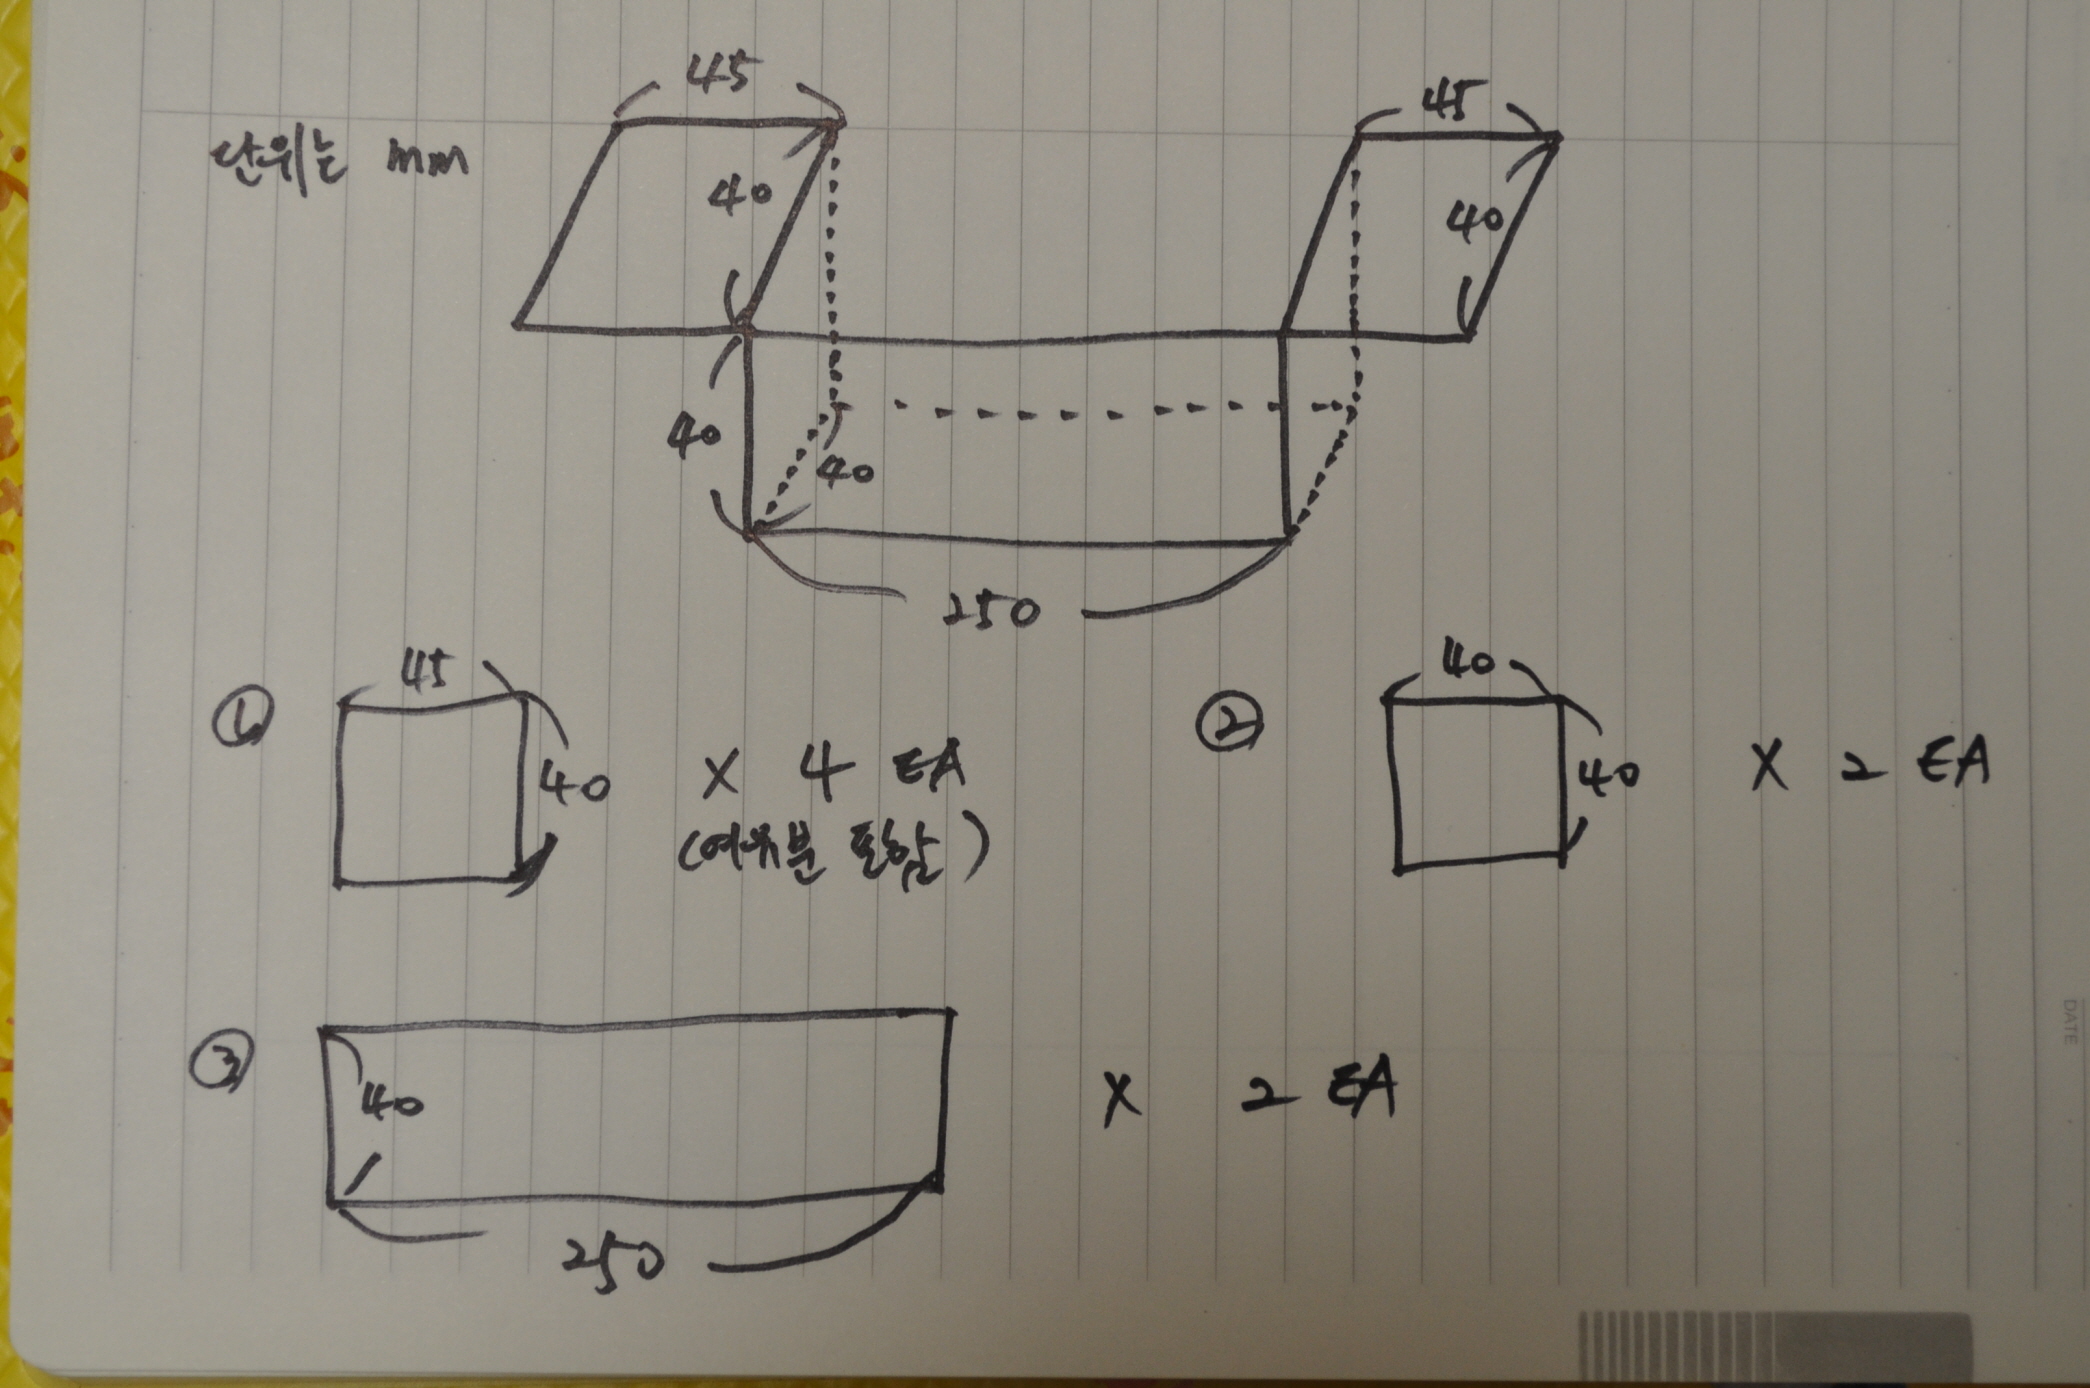 45
45
단위는 mm
40
40
40
40
250
① 45
40
X 4 EA
(여유분 포함)
② 40
40 X 2 EA
③
40
X 2 EA
250
DATE